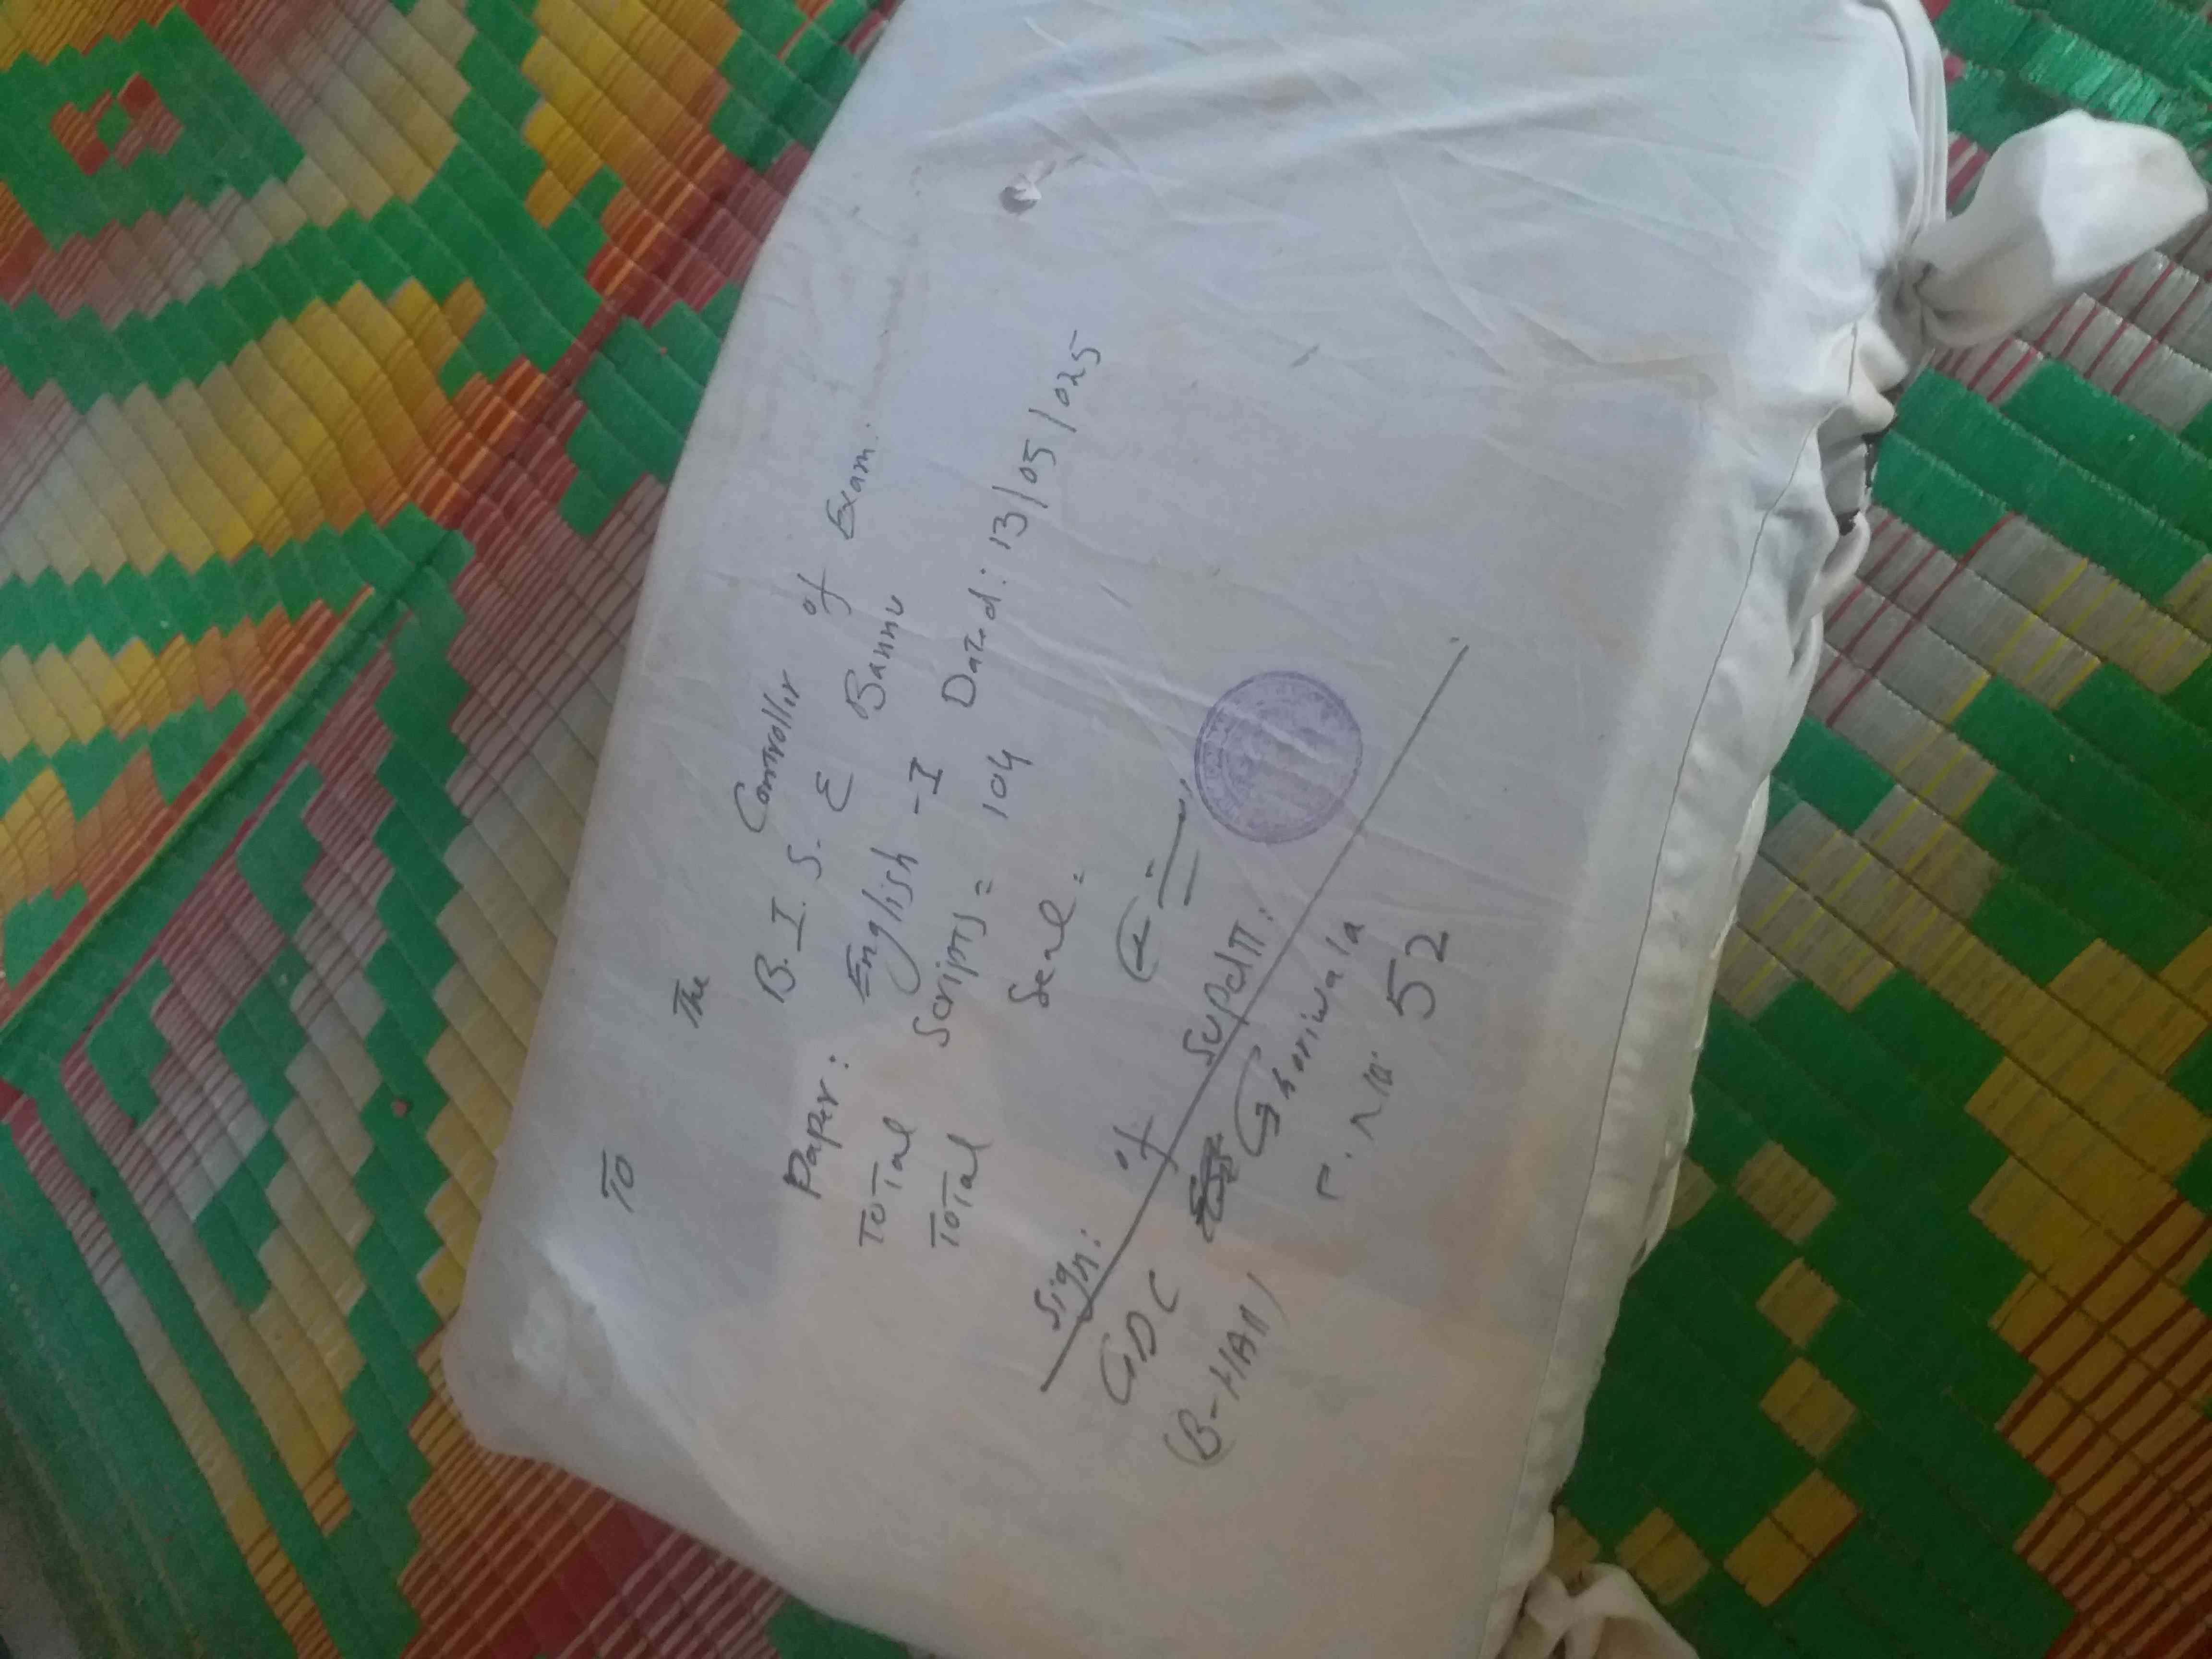 To
The
Controller of Exam:
B.I.S.E Bannu
Paper: English -I Dated: 13/05/025
Total Scripts = 104
Total Seal =
Sign: of Supdtt:
GDC Ghoriwala
(B-Hall)
C.No. 52